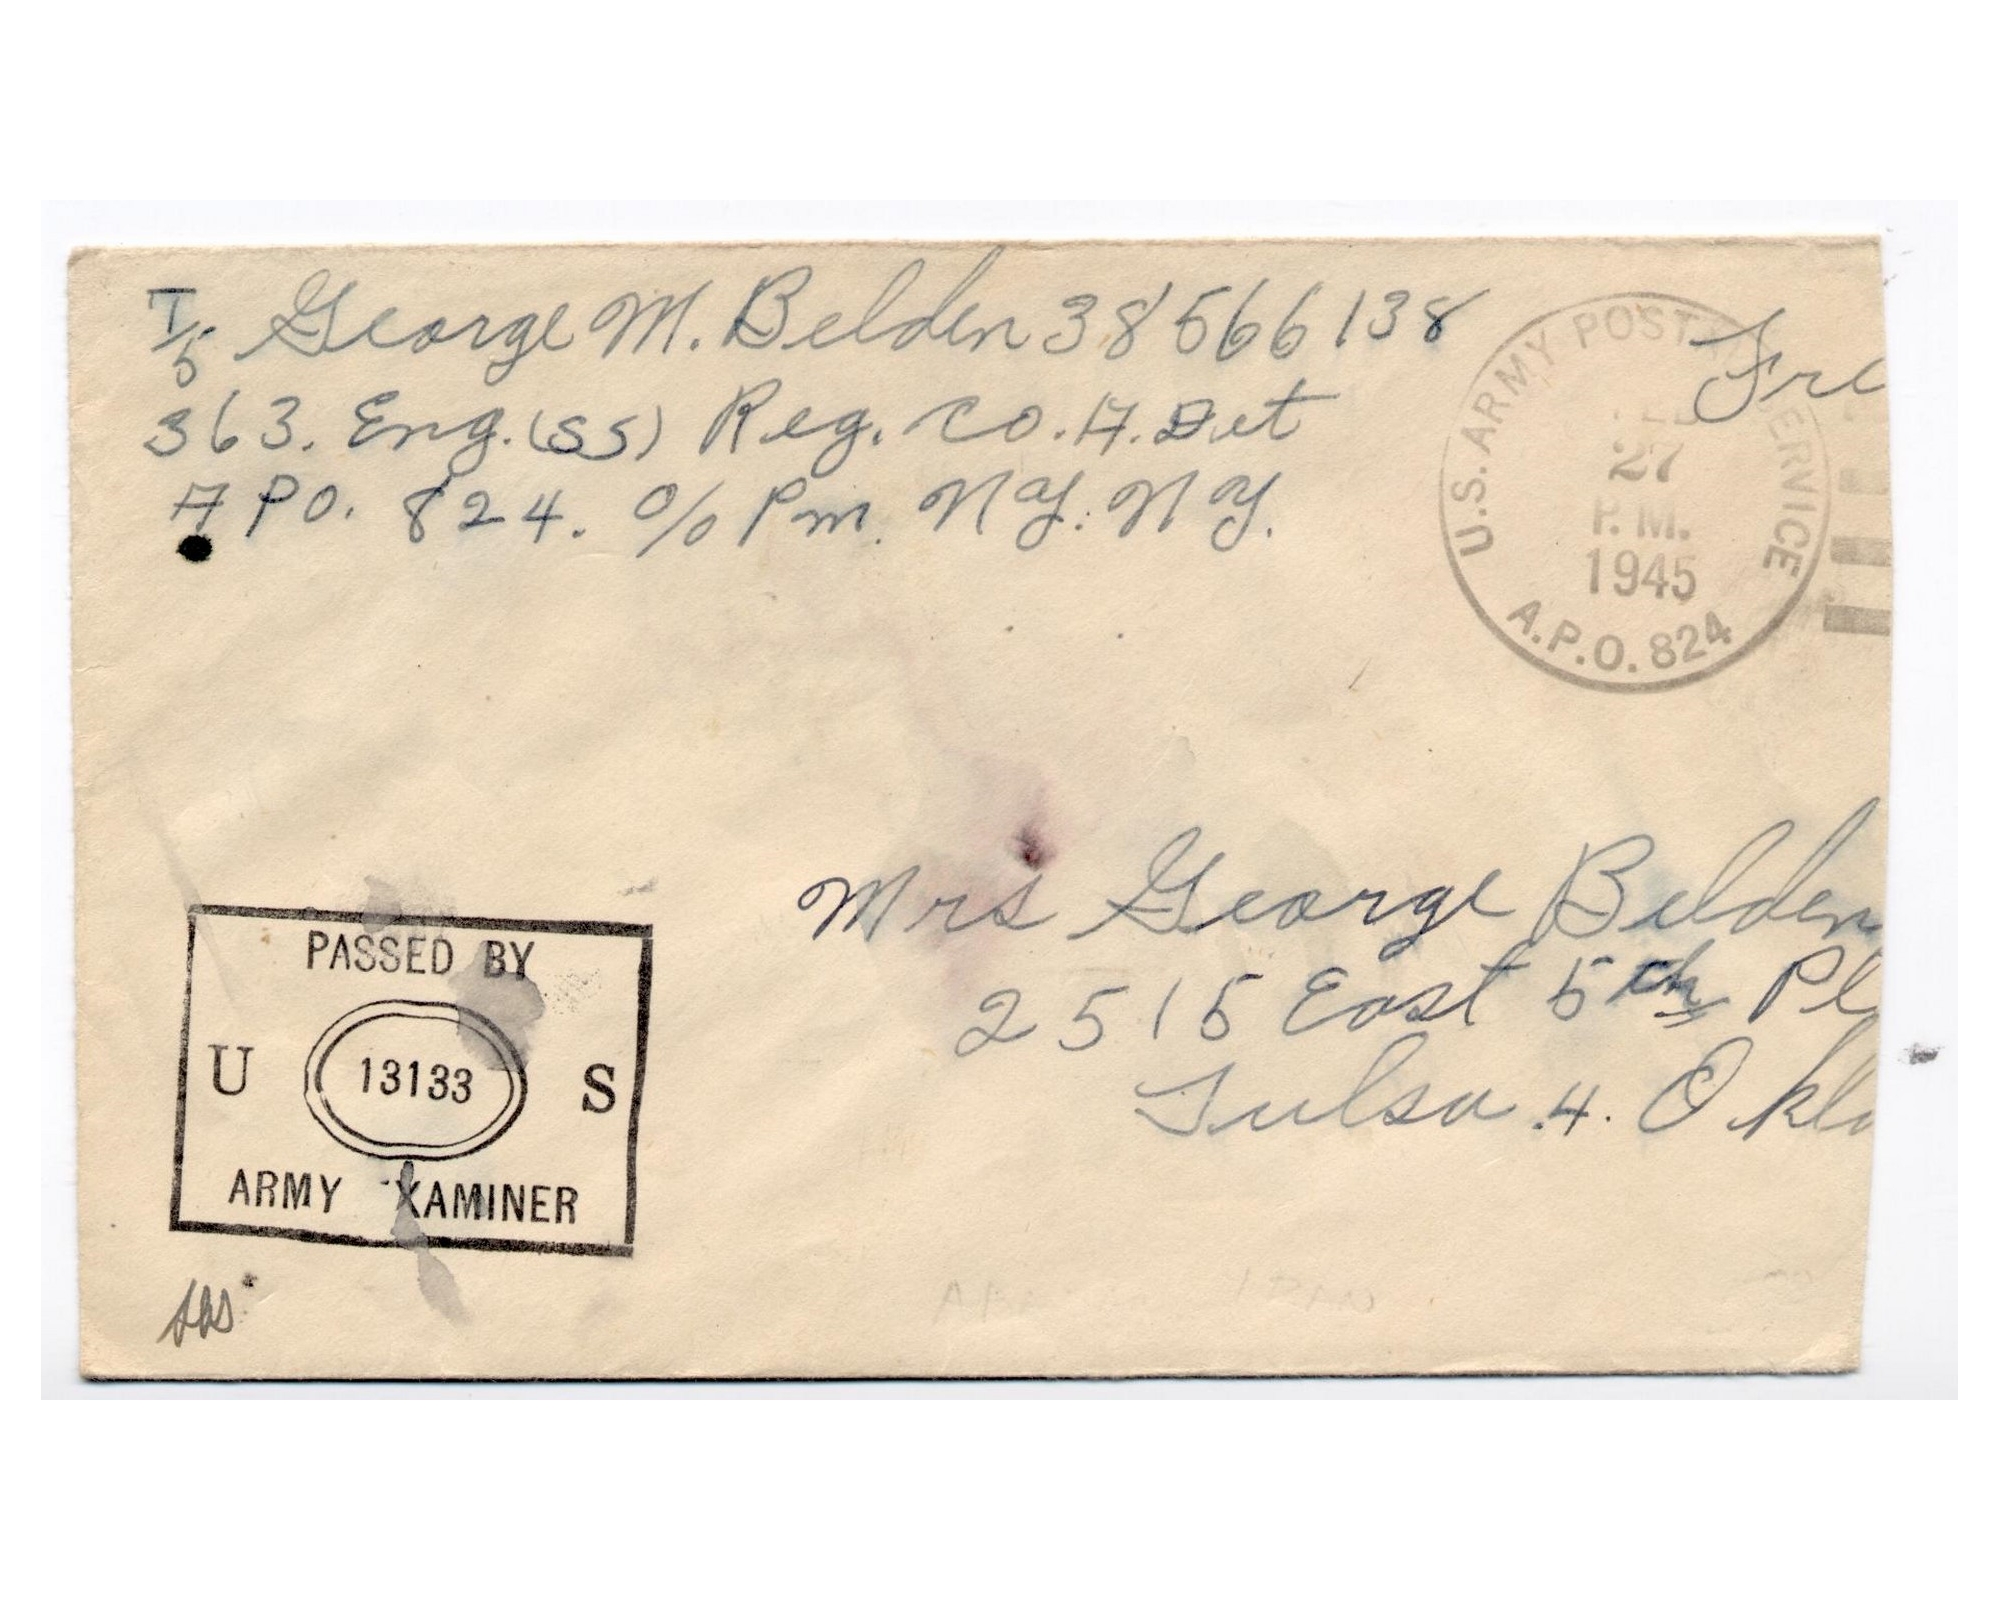 T/5 George M. Belden 38566138
363. Eng. (SS) Reg. Co. A. Det
APO. 824. c/o Pm. NY. NY.
Fre
U.S. ARMY POSTAL SERVICE
27
P. M.
1945
A.P.O. 824
Mrs George Belden
2515 East 5th Pl
Tulsa .4. Okla
PASSED BY
U 13133 S
ARMY EXAMINER